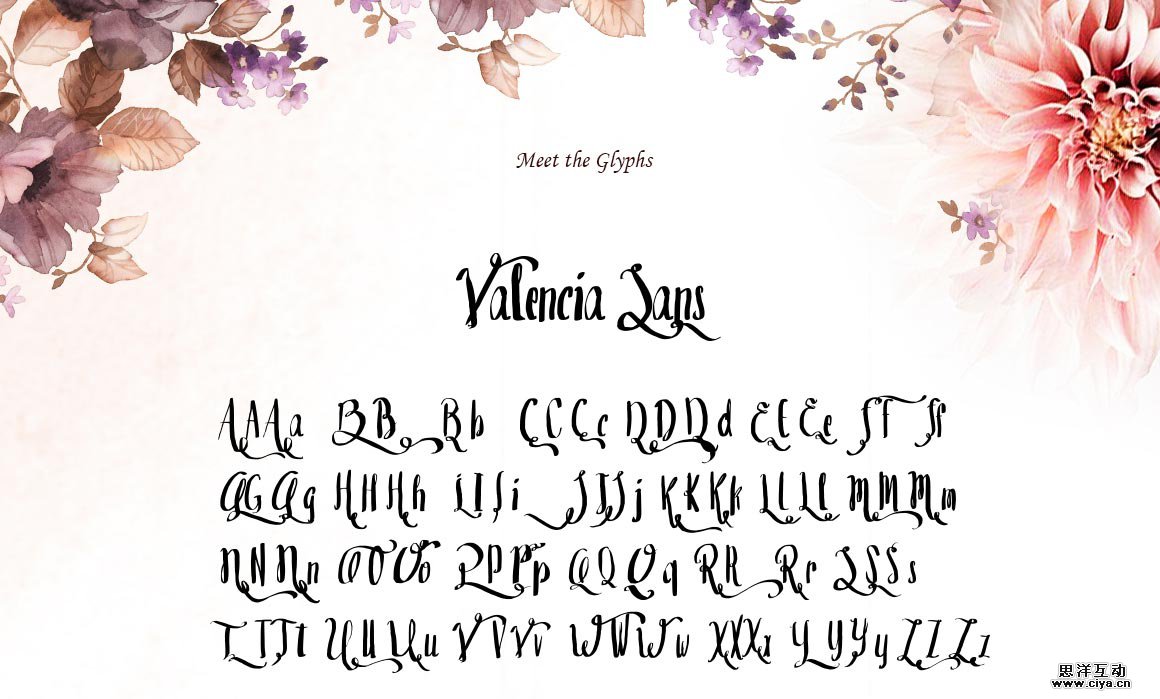 Meet the Glyphs
Valencia Sans
AAAa BB Bb CCCc DDDd EEEe FF Ff
GGGg HHHh IIIi JJJj KKKk LLLl MMMm
NNNn OOOo PPPp QQQq RR Rr SSSs
TTTt UUUu VVVv WWWw XXXx YYYy ZZZz
思洋互动
www.ciya.cn